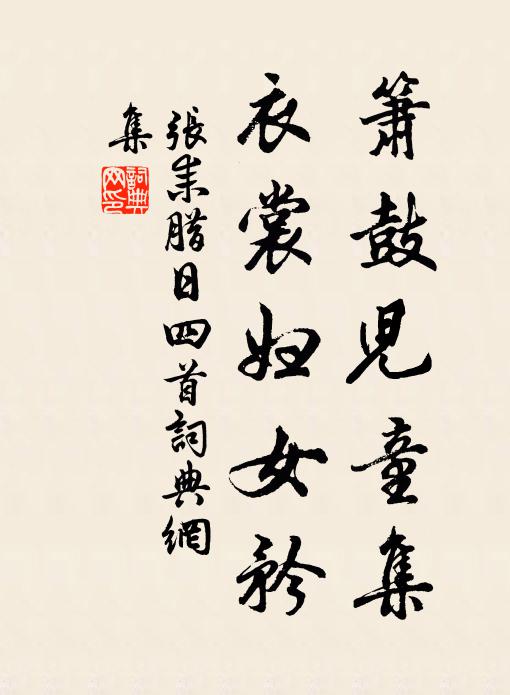 簫鼓兒童集
衣裳婦女矜
張耒腊日四首詞典網
集
詞典網印